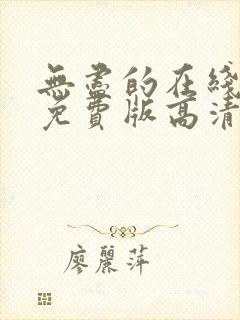 無盡的在綫
免費版高清
廖麗萍